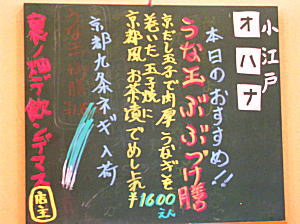 小江戸
オハナ
本日のおすすめ!!
うな玉ぶぶづけ膳
京だし玉子で肉厚うなぎを
巻いた玉子焼に
京粋風お茶漬でめし上れ
¥1600
京都九条ネギ入荷
裏ノ畑デ飲ンデマス
店主